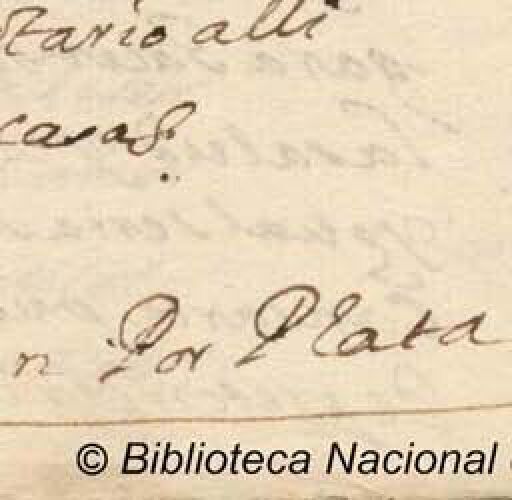 otario alli
casas.
n Por Plata
© Biblioteca Nacional